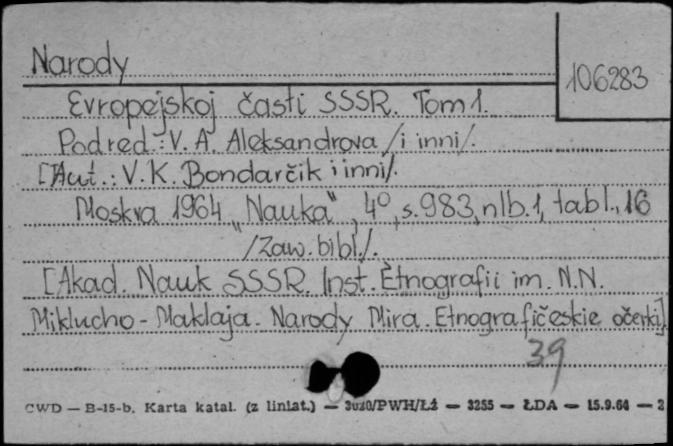 Narody
106283
Evropejskoj časti SSSR. Tom 1.
Pod red.: V. A. Aleksandrova /i inni/.
[Aut.: V. K. Bondarčik i inni/.
Moskva 1964 „Nauka", 4°, s. 983, nlb. 1, tabl., 16
/Zaw. bibl./.
[Akad. Nauk SSSR. Inst. Ètnografii im. N.N.
Miklucho-Maklaja. Narody Mira. Etnografičeskie očerki].
39
CWD — B-15-b. Karta katal. (z liniat.) — 3020/PWH/Łź — 3255 — ŁDA — 15.9.64 — 2